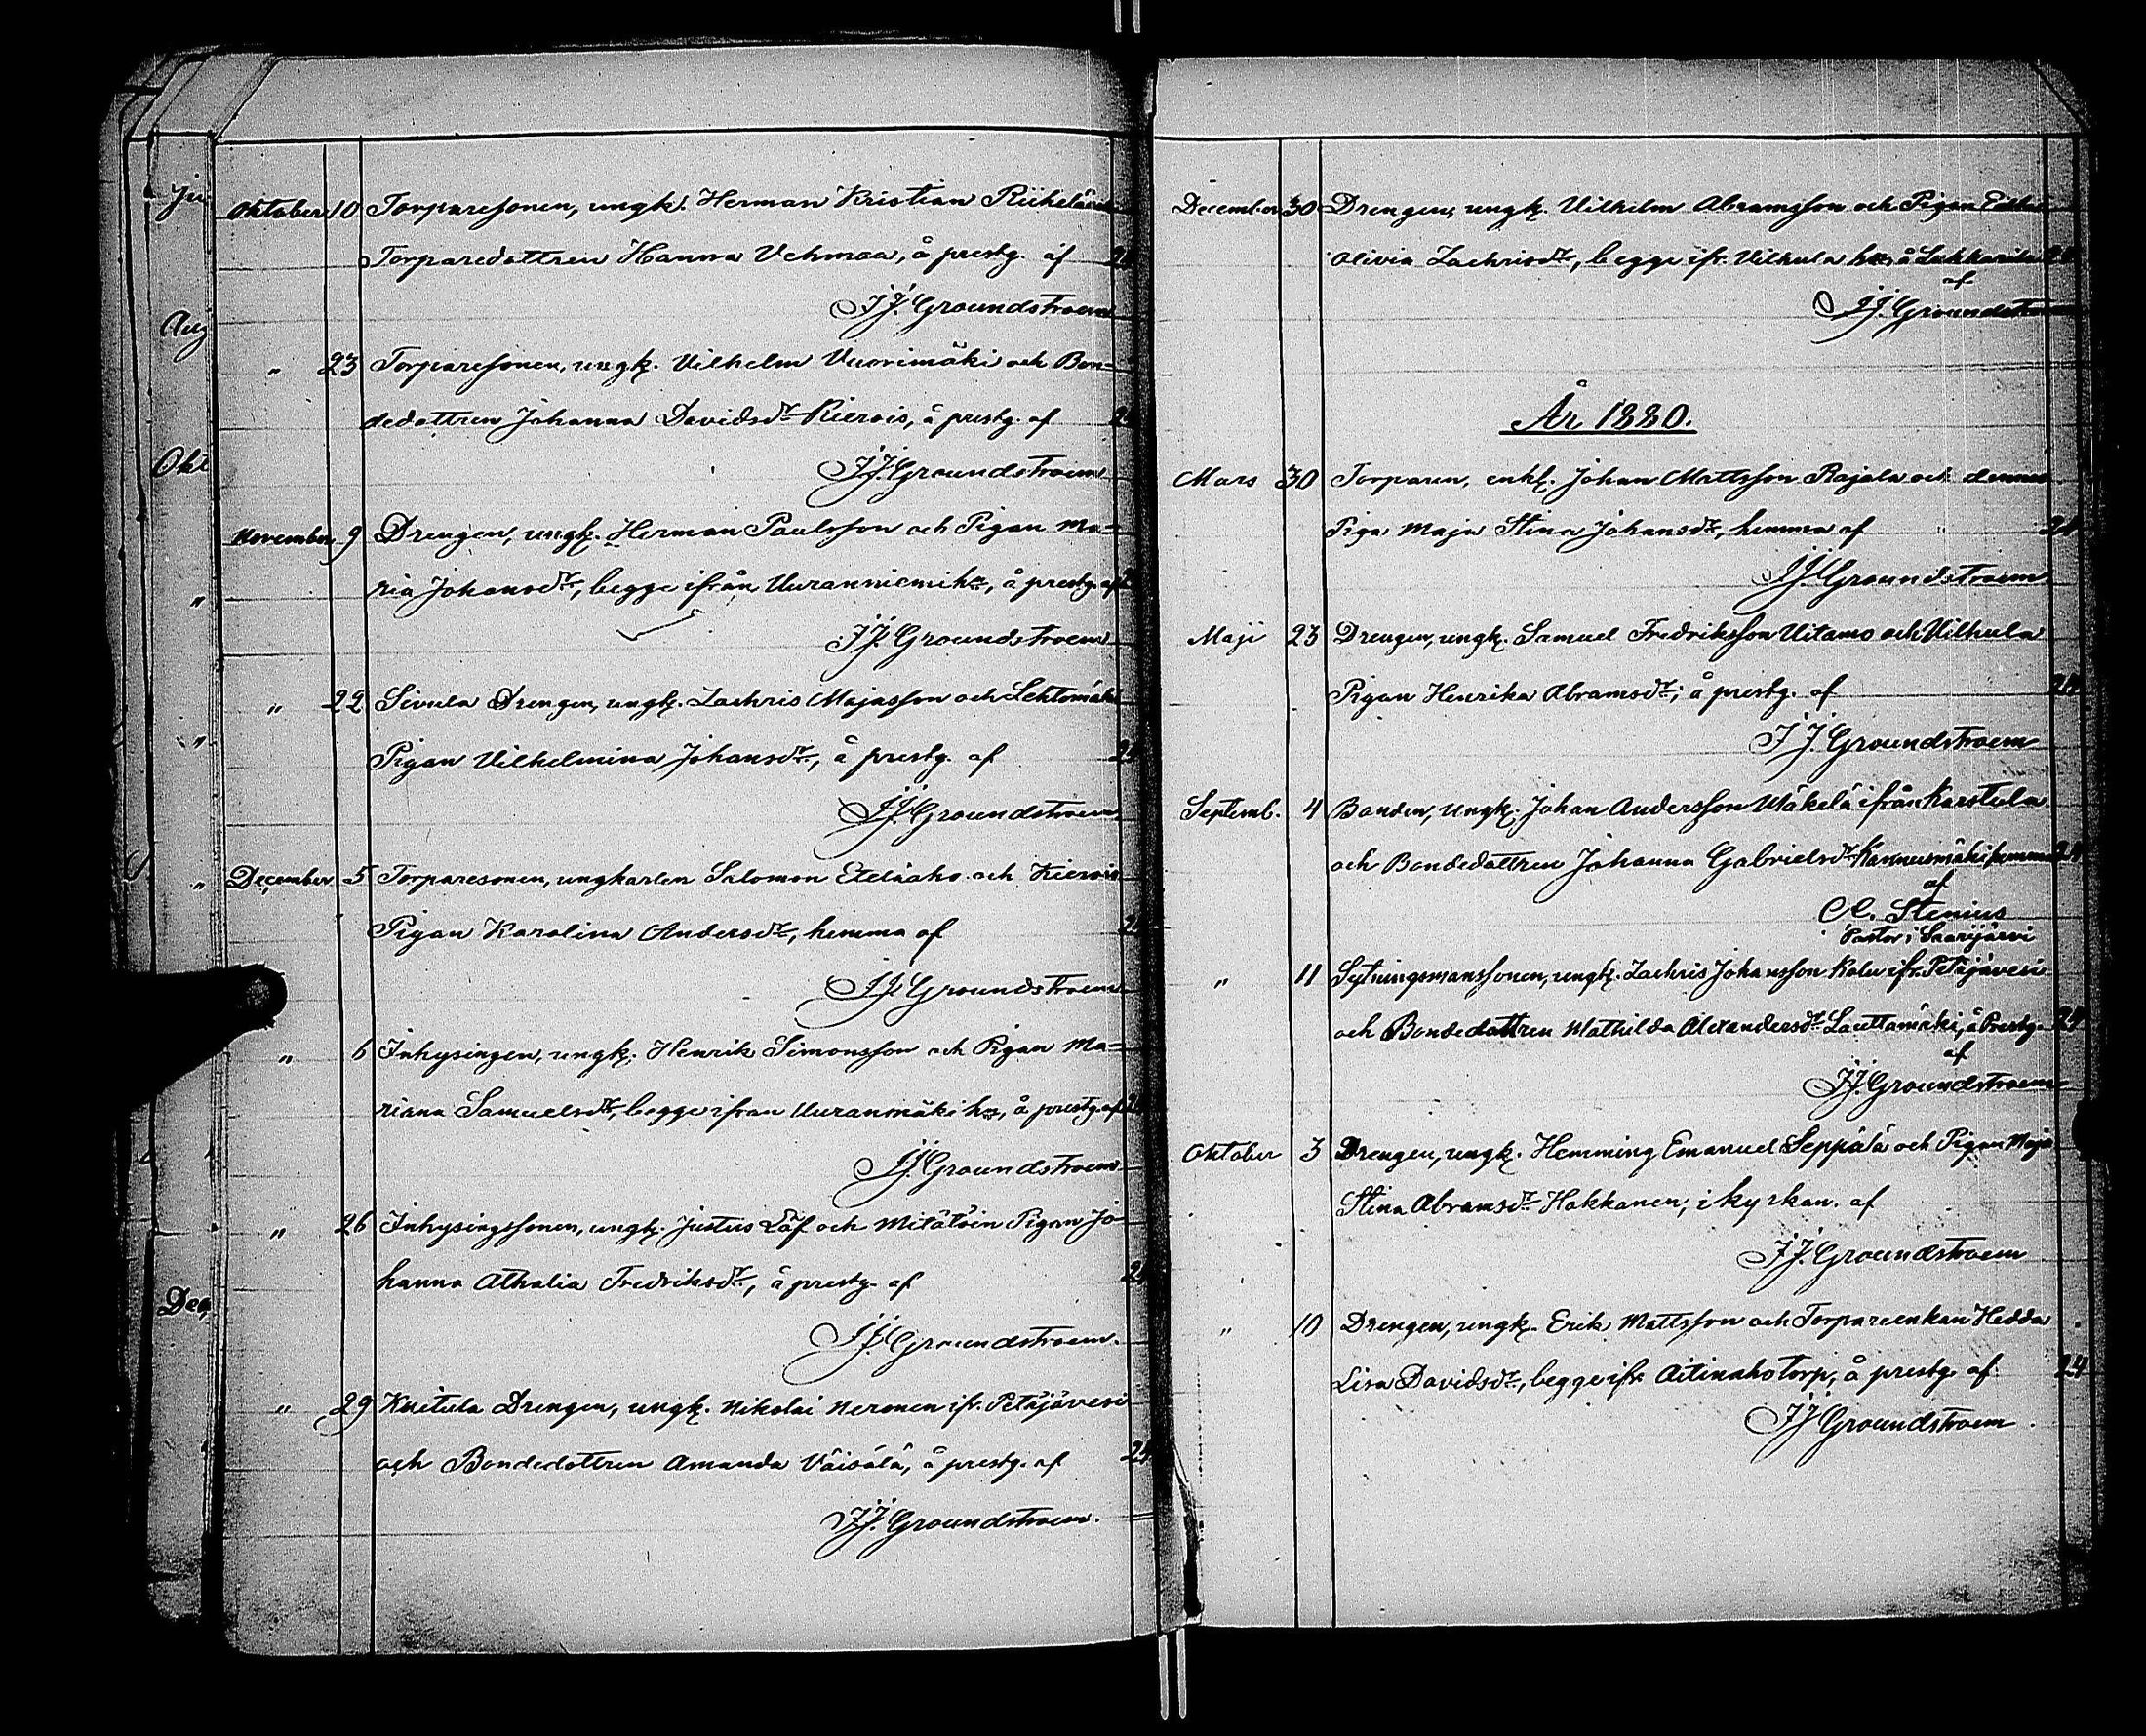 Oktober 10 Torparesonen, ungk. Herman Kristian Riihelä
Torparedottren Hanna Vehmaa, å prestg. af 24
I J. Groundstroem
" 23 Torparesonen, ungk. Vilhelm Vuorimäki och Bon-
dedottren Johanna Davidsdr Kierois, å prestg. af 24
I J. Groundstroem
November 9 Drengen, ungk. Herman Paulsson och Pigan Ma-
ria Johansdr, begge ifrån Uuranniemi hn, å prestg. af
I J. Groundstroem
" 22 Sivula Drengen, ungk. Zachris Majasson och Lehtomäki
Pigan Vilhelmina Johansdr, å prestg. af 24
I J. Groundstroem
December 5 Torparesonen, ungkarlen Salomon Eteläaho och Kierois
Pigan Karolina Andersdr, hemma af
I J. Groundstroem
" 6 Inhysingen, ungk. Henrik Simonsson och Pigan Ma-
riana Samuelsdr, begge ifrån Uuranmäki hn, å prestg. af
I J. Groundstroem
" 26 Inhysingssonen, ungk. Justus Löf och Mitätöin Pigan Jo-
hanna Athalia Fredriksdr, å prestg. af 24
I J. Groundstroem.
" 29 Knitula Drengen, ungk. Nikolai Neronen ifr. Petäjävesi
och Bondedottren Amanda Väisälä, å prestg. af 24
I J. Groundstroem.
Jun
Aug
Okt
"
"
"
Dec
December 30 Drengen, ungk. Vilhelm Abramsson och Pigan
Olivia Zachrisdr, begge ifr. Vilhula hn, å
af
I J. Groundstroem
År 1880.
Mars 30 Torparen, enkl. Johan Mattsson Rajala och dennes
Piga Maja Stina Johansdr, hemma af 24
I J. Groundstroem
Maji 23 Drengen, ungk. Samuel Fredriksson Uitamo och Vilhula
Pigan Henrika Abramsdr, å prestg. af 24
I J. Groundstroem
Septemb. 4 Bonden, ungk. Johan Andersson Mäkelä ifrån Karstula
och Bondedottren Johanna Gabrielsdr Kannusmäki hemma 24
af
C. Stenius
Pastor i Saarijärvi
" 11 Sytningsmanssonen, ungk. Zachris Johansson Kolu ifr. Petäjävesi
och Bondedottren Mathilda Alexandersdr Lauttamäki, å Prestg. 24
af
I J. Groundstroem
Oktober 3 Drengen, ungk. Hemming Emanuel Seppälä och Pigan Maja
Stina Abramsdr Hakkanen, i kyrkan. af
I J. Groundstroem
" 10 Drengen, ungk. Erik Mattsson och Torpareenkan Hedda
Lisa Davidsdr, begge ifr Aitinaho torp, å prestg. af 24
I J. Groundstroem.